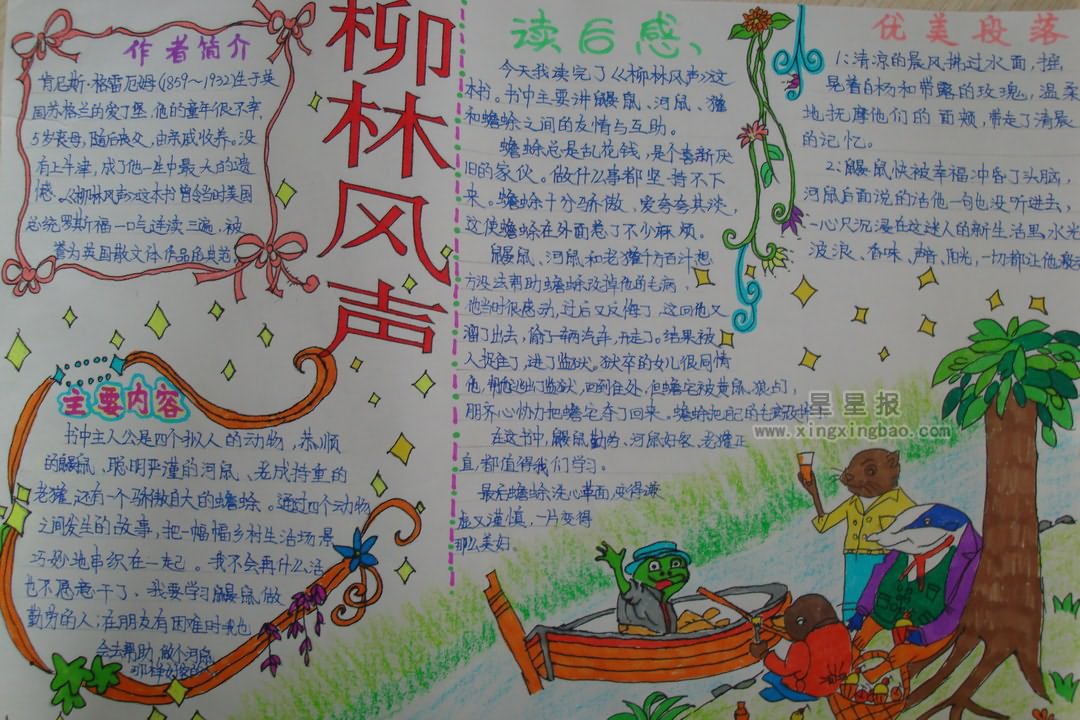 作者简介
肯尼斯·格雷厄姆(1859～1932)生于英
国苏格兰的爱丁堡,他的童年很不幸,
5岁丧母,随后丧父,由亲戚收养。没
有上牛津,成了他一生中最大的遗
憾。《柳林风声》这本书曾当时美国
总统罗斯福一口气连读三遍,被
誉为英国散文体作品的典范
柳林风声
主要内容
书中主人公是四个拟人的动物,恭顺
的鼹鼠、聪明严谨的河鼠、老成持重的
老獾,还有一个骄傲自大的蟾蜍。通过四个动物
之间发生的故事,把一幅幅乡村生活场景
巧妙地串织在一起。我不会再什么活
也不愿意干了、我要学习鼹鼠做
勤劳的人;在朋友有困难时我也
会去帮助,做个河鼠
那样好客的
读后感、
今天我读完了《柳林风声》这
本书。书中主要讲鼹鼠、河鼠、獾
和蟾蜍之间的友情与互助。
蟾蜍总是乱花钱,是个喜新厌
旧的家伙。做什么事都坚持不下
来。蟾蜍十分骄傲、爱夸夸其谈,
这使蟾蜍在外面惹了不少麻烦。
鼹鼠、河鼠和老獾千方百计想
方设法帮助蟾蜍改掉他的毛病,
他当时很感动,过后又反悔了,这回他又
溜了出去,偷了一辆汽车,开走了。结果被
人捉住了,进了监狱。狱卒的女儿很同情
他,帮他逃出了监狱,回到住处,但蟾宅被黄鼠、狼占了,
朋齐心协力把蟾宅夺了回来。蟾蜍把自己的毛病改掉
在这书中,鼹鼠勤劳、河鼠好客、老獾正
直,都值得我们学习。
最后蟾蜍洗心革面,变得谦
虚又谨慎,一片变得
那么美好
优美段落
1:清凉的晨风拂过水面,摇
晃着白杨和带露的玫瑰,温柔
地抚摩他们的面颊,带走了清晨
的记忆。
2:鼹鼠快被幸福冲昏了头脑,
河鼠后面说的话他一句也没听进去,
一心只沉浸在这迷人的新生活里,水光
波浪、香味、声音、阳光,一切都让他
星星报
www.xingxingbao.com